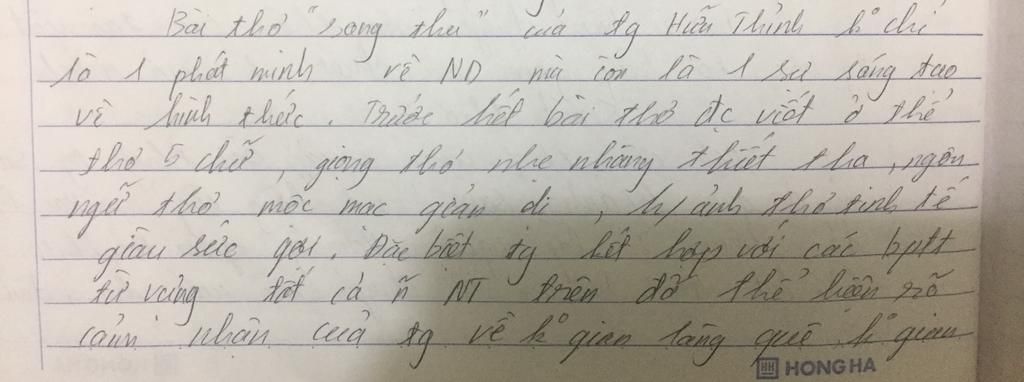 Bài thơ "sang thu" của tg Hữu Thỉnh k° chỉ
là 1 phát minh về ND mà còn là 1 sự sáng tạo
về hình thức. Trước hết bài thơ đc viết ở thể
thơ 5 chữ, giọng thơ nhẹ nhàng thiết tha, ngôn
ngữ thơ mộc mạc giản dị, h/ảnh thơ tinh tế
giàu sức gợi. Đặc biệt tg kết hợp với các bptt
từ vựng tất cả n̄ NT trên đã thể hiện rõ
cảm nhận của tg về k° gian làng quê, k° gian
HONG HA